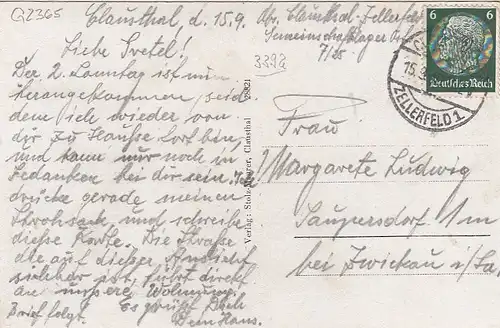 G2365
Clausthal d. 15.9.
Abs. Clausthal-Zellerfeld
Gemeinschaftslager
7/25
3392
Liebe Gretel!
Der 2. Sonntag ist nun
herangekommen, seid
dem ich wieder von
dir zu Hausse fort bin,
und kann nur noch in
Gedanken bei dir sein. Ich
drücke gerade meinen
Strohsack, und schreibe
diesse Karte. Die Straße
die auf diesser Ansicht
sichtbar ist, führt direkt
an unsere Wohnung.
Brief folgt. Es grüßt Dich
Dein Hans.
Verlag: Stolz-Meurer, Clausthal
28821
6 6
Deutsches Reich
15.9.
ZELLERFELD 1
Frau
Margarete Ludwig
Saupersdorf 1m
bei Zwickau i/Sa